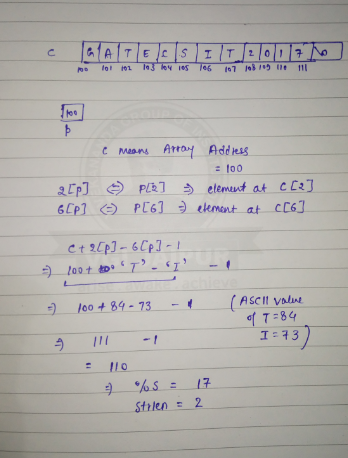 C G A T E C S I T 2 0 1 7 \0
100 101 102 103 104 105 106 107 108 109 110 111
100
P
C means Array Address
= 100
2[P] <=> P[2] => element at C[2]
6[P] <=> P[6] => element at C[6]
C + 2[P] - 6[P] - 1
=> 100 + 'T' - 'I' - 1
=> 100 + 84 - 73 - 1 (ASCII value
of T = 84
I = 73)
=> 111 - 1
= 110
=> %S = 17
Strlen = 2